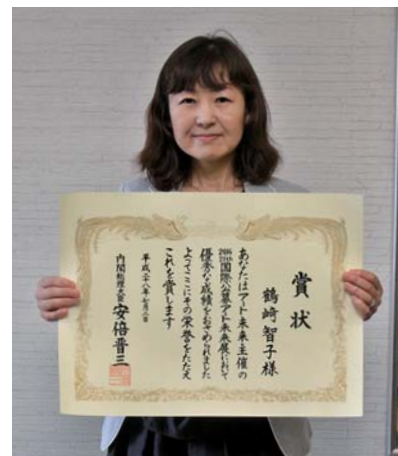 賞状
鶴﨑智子様
あなたはアート未来主催の
2016国際公募アート未来展において
優秀な成績をおさめられました
よってここにその栄誉をたたえ
これを賞します
平成二十八年七月二日
内閣総理大臣 安倍晋三